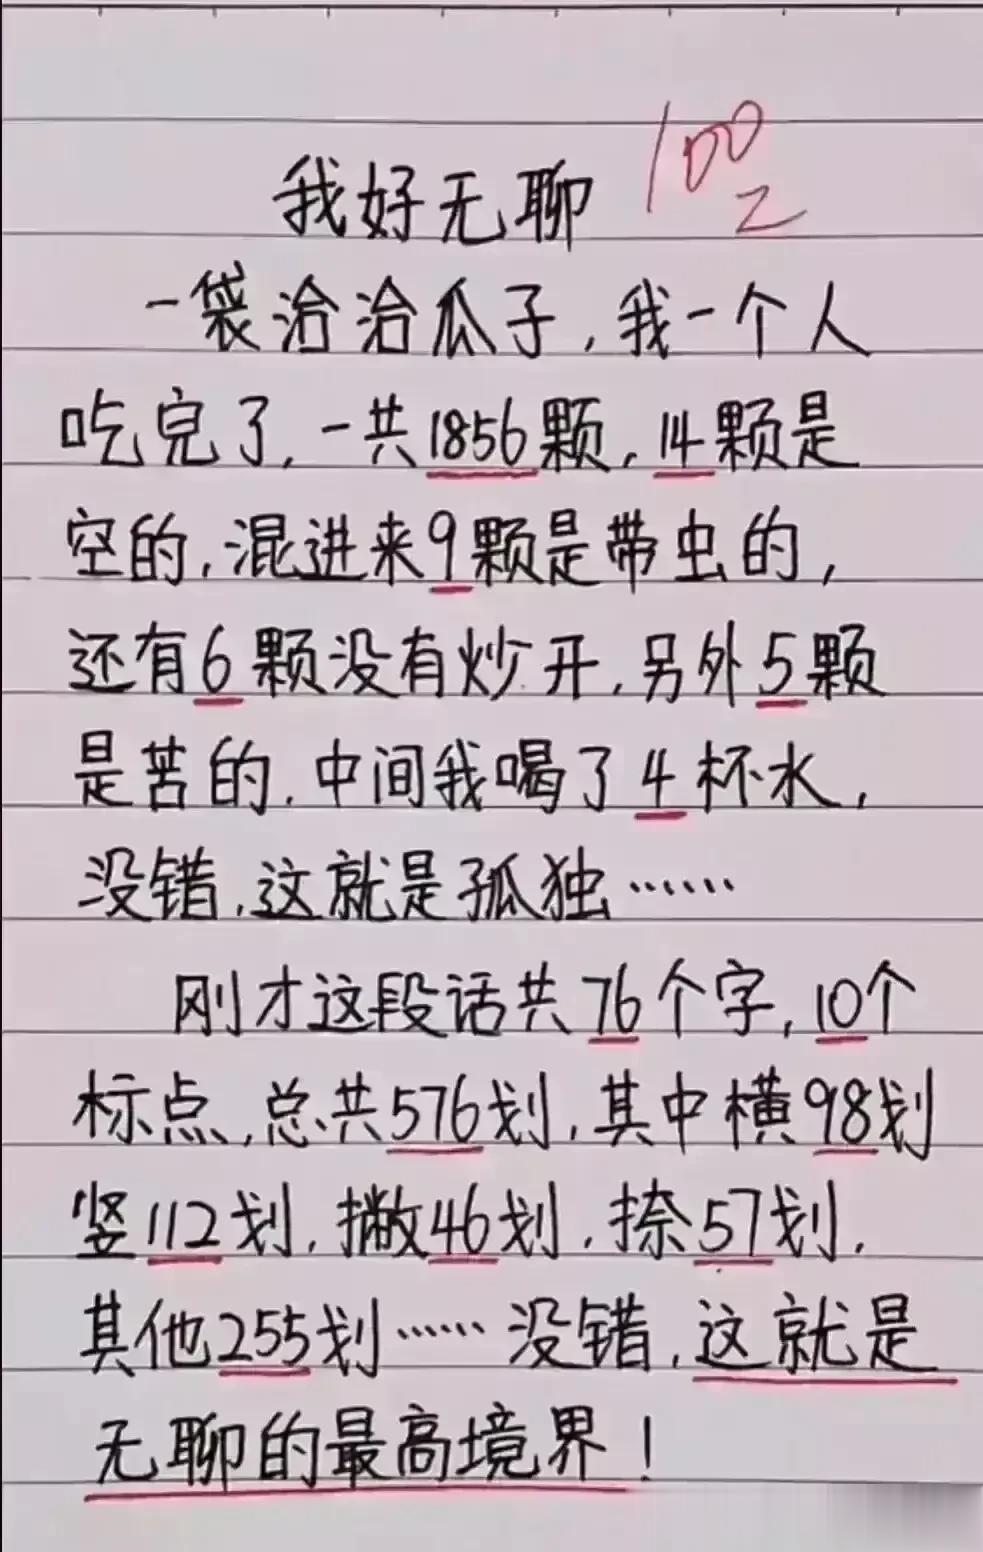 我好无聊 100
一袋洽洽瓜子，我一个人
吃完了，一共1856颗，14颗是
空的，混进来9颗是带虫的，
还有6颗没有炒开，另外5颗
是苦的，中间我喝了4杯水，
没错，这就是孤独……
刚才这段话共76个字，10个
标点，总共576划，其中横98划
竖112划，撇46划，捺57划，
其他255划……没错，这就是
无聊的最高境界！